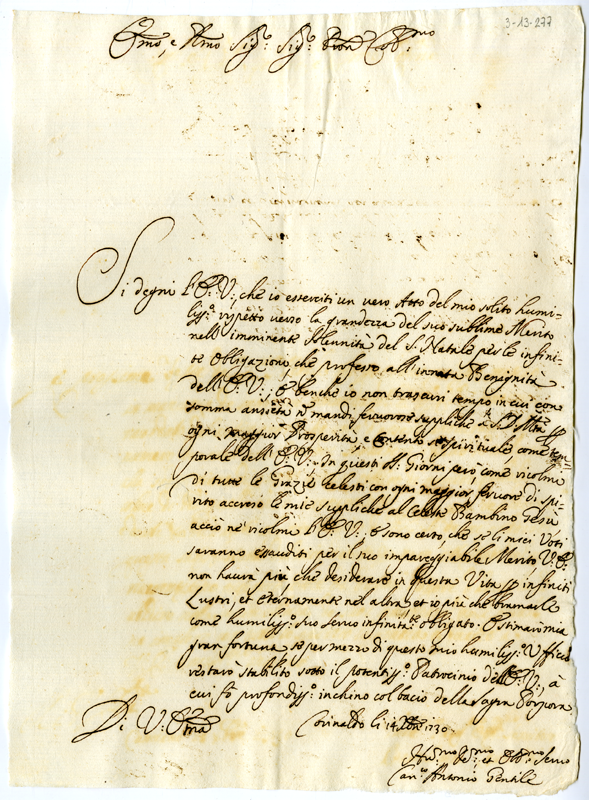 3-13-277
E.mo, e R.mo Sig.r Sig.r Pron Col.mo
Si degni l'E. V., che io eserciti un vero Atto del mio solito humi-
liss.o rispetto verso la grandezza del suo sublime Merito
nell'imminente Solennità del S. Natale per le infini-
te obligazioni, che professo all'innata Benignità
dell'E. V., e benche io non trascuri tempo in cui con
somma ansietà nè mandi fervorose suppliche a S. D. M.tà
ogni maggior Prosperità, e Contento sì spirituale, come tem-
porale dell'E. V. In questi SS. Giorni però, come ricolmi
di tutte le Grazie Celesti con ogni maggior fervore di spi-
rito accreso le mie suppliche al Celeste Bambino Gesù
acciò nè ricolmi l'E. V., e sono certo, che se li miei Voti
saranno esauditi per il suo impareggiabile Merito V. E.
non haurà più che desiderare in questa Vita p infiniti
Lustri, et eternamente nel altra, et io più che bramarle
come humiliss.o suo servo infinita.te obligato. Estimarò mia
gran fortuna se per mezzo di questo mio humiliss.o Ufficio
restarò stabilito sotto il potentiss.o Patrocinio dell'E. V., à
cui fò profondiss.o inchino col bacio della Sagra Porpora.
Di V. Em.za
Corinaldo li 14 Xbre 1730
Hu.mo De.mo et Ob.mo Servo
Can.co Antonio Gentile